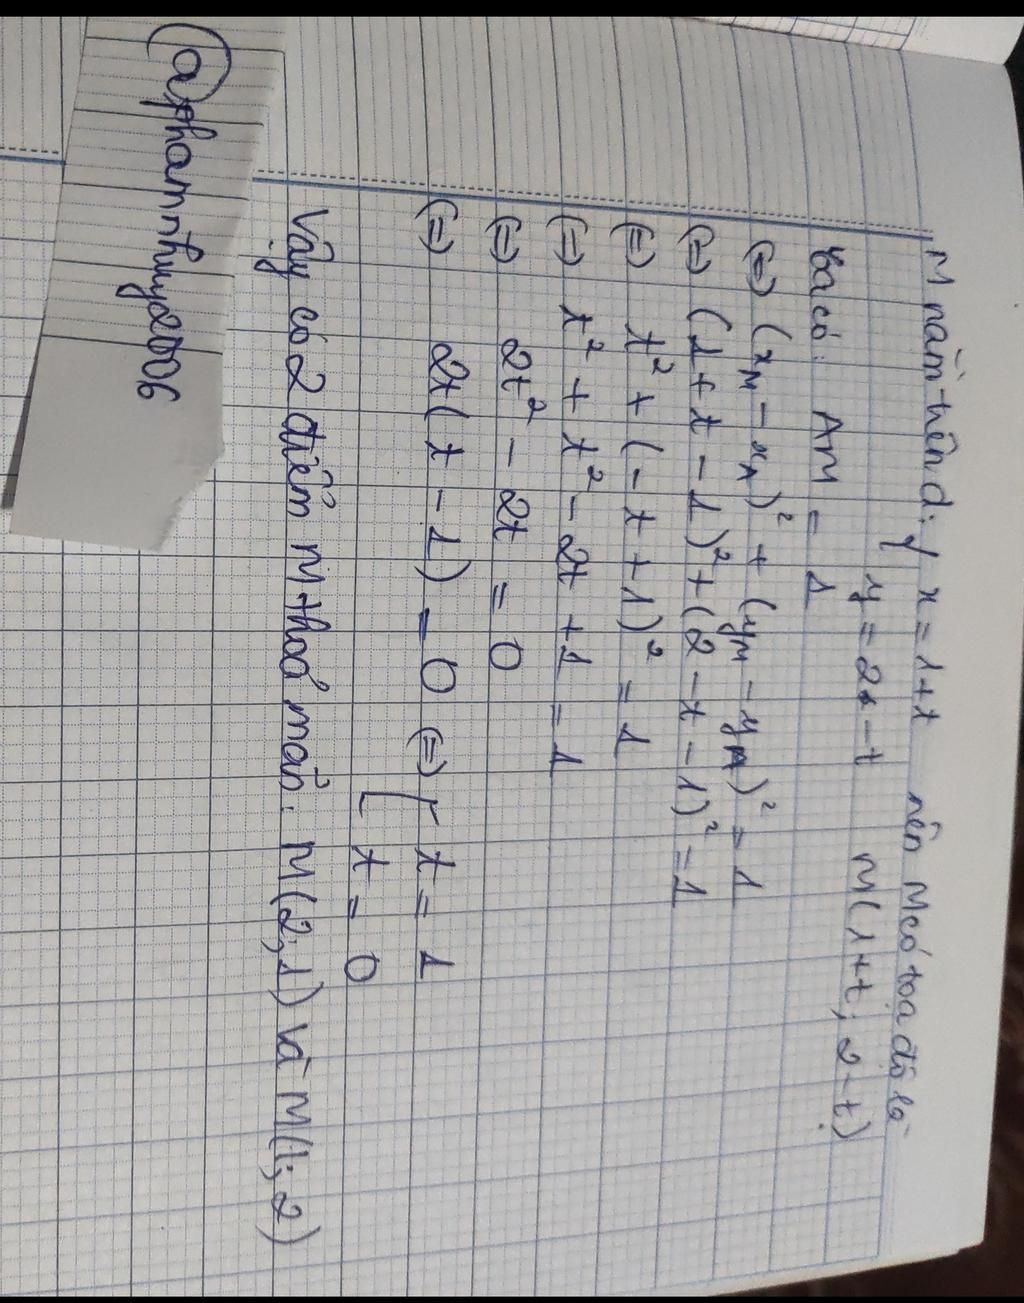 M nằm trên d: { x = 1+t nên M có toạ độ là
y = 2 - t M(1+t; 2-t)
Ta có: AM = 1
(=) (xM - xA)² + (yM - yA)² = 1
(=) (1 + t - 1)² + (2 - t - 1)² = 1
(=) t² + (-t + 1)² = 1
(=) t² + t² - 2t + 1 = 1
(=) 2t² - 2t = 0
(=) 2t(t - 1) = 0 (=) [ t = 1
t = 0
Vậy có 2 điểm M thoả mãn: M(2; 1) và M(1; 2)
@phamnhuy2006